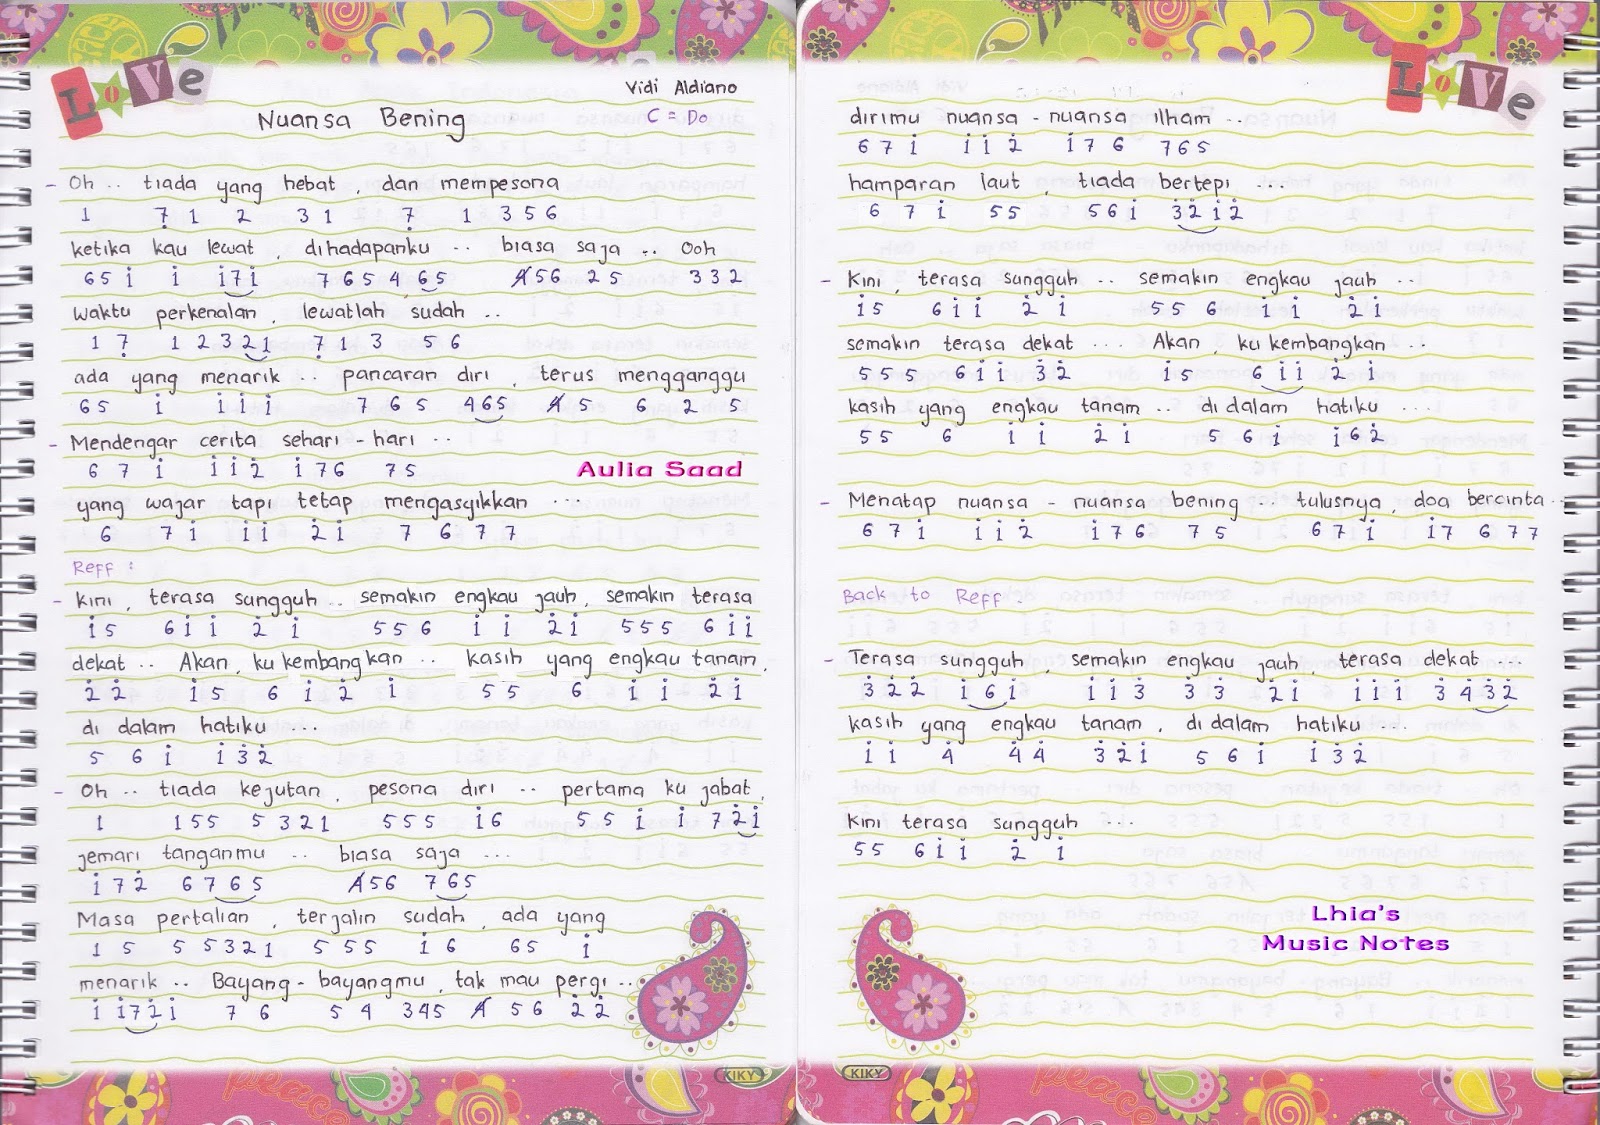 LOVE
Vidi Aldiano
Nuansa Bening
C = Do
- Oh .. tiada yang hebat , dan mempesona
1 7̣ 1 2 3 1 7̣ 1 3 5 6
ketika kau lewat , dihadapanku .. biasa saja .. Ooh
6 5 i̇ i̇ i̇ 7 i̇ 7 6 5 4 6 5 4̸ 5 6 2 5 3 3 2
waktu perkenalan , lewatlah sudah ..
1 7̣ 1 2 3 2 1 7̣ 1 3 5 6
ada yang menarik .. pancaran diri , terus mengganggu
6 5 i̇ i̇ i̇ i̇ 7 6 5 4 6 5 4̸ 5 6 2 5
- Mendengar cerita sehari - hari ..
6 7 i̇ i̇ i̇ 2̇ i̇ 7 6 7 5
Aulia Saad
yang wajar tapi tetap mengasyikkan ...
6 7 i̇ i̇ i̇ 2̇ i̇ 7 6 7 7
Reff :
- Kini , terasa sungguh .. semakin engkau jauh , semakin terasa
i̇ 5 6 i̇ i̇ 2̇ i̇ 5 5 6 i̇ i̇ 2̇ i̇ 5 5 5 6 i̇ i̇
dekat .. Akan , ku kembangkan .. kasih yang engkau tanam ,
2̇ 2̇ i̇ 5 6 i̇ 2̇ i̇ 5 5 6 i̇ i̇ 2̇ i̇
di dalam hatiku ...
5 6 i̇ i̇ 3̇ 2̇
- Oh .. tiada kejutan , pesona diri .. pertama ku jabat ,
1 1 5 5 5 3 2 1 5 5 5 i̇ 6 5 5 i̇ i̇ 7 2̇ i̇
jemari tanganmu .. biasa saja ...
i̇ 7 2̇ 6 7 6 5 4̸ 5 6 7 6 5
Masa pertalian , terjalin sudah , ada yang
1 5 5 5 3 2 1 5 5 5 i̇ 6 6 5 i̇
menarik .. Bayang - bayangmu , tak mau pergi ..
i̇ i̇ 7 2̇ i̇ 7 6 5 4 3 4 5 4̸ 5 6 2̇ 2̇
KIKY
LOVE
dirimu nuansa - nuansa ilham ..
6 7 i̇ i̇ i̇ 2̇ i̇ 7 6 7 6 5
hamparan laut , tiada bertepi ...
6 7 i̇ 5 5 5 6 i̇ 3̇ 2̇ i̇ 2̇
- Kini , terasa sungguh .. semakin engkau jauh ..
i̇ 5 6 i̇ i̇ 2̇ i̇ 5 5 6 i̇ i̇ 2̇ i̇
semakin terasa dekat ... Akan , ku kembangkan ..
5 5 5 6 i̇ i̇ 3̇ 2̇ i̇ 5 6 i̇ i̇ 2̇ i̇
kasih yang engkau tanam .. di dalam hatiku ...
5 5 6 i̇ i̇ 2̇ i̇ 5 6 i̇ i̇ 6 2̇
- Menatap nuansa - nuansa bening .. tulusnya , doa bercinta ..
6 7 i̇ i̇ i̇ 2̇ i̇ 7 6 7 5 6 7 i̇ i̇ 7 6 7 7
Back to Reff .
- Terasa sungguh , semakin engkau jauh , terasa dekat ...
3̇ 2̇ 2̇ i̇ 6 i̇ i̇ i̇ 3̇ 3̇ 3̇ 2̇ i̇ i̇ i̇ i̇ 3̇ 4̇ 3̇ 2̇
kasih yang engkau tanam , di dalam hatiku ...
i̇ i̇ 4̇ 4̇ 4̇ 3̇ 2̇ i̇ 5 6 i̇ i̇ 3̇ 2̇
Kini terasa sungguh ...
5 5 6 i̇ i̇ 2̇ i̇
Lhia's
Music Notes
KIKY